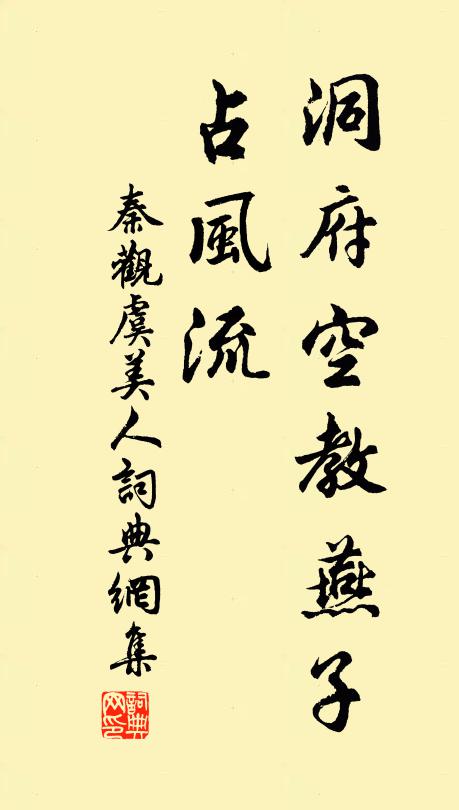 洞府空教燕子
占風流
秦觀虞美人詞典網集
詞典网印